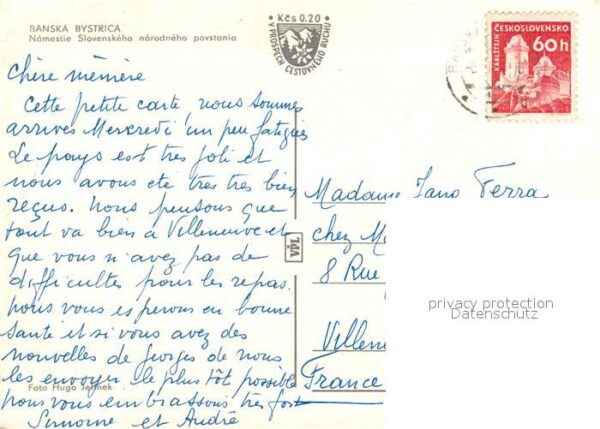 BANSKÁ BYSTRICA
Námestie Slovenského národného povstania
Kčs 0.20
V PROSPECH CESTOVNÉHO RUCHU
ČESKOSLOVENSKO
KARLŠTEJN
60h
Chère mémère
Cette petite carte, nous sommes
arrivés Mercredi un peu fatigués
Le pays est très joli et
nous avons été très très bien
reçus. Nous pensons que
tout va bien à Villeneuve et
que vous n'avez pas de
difficultés pour les repas.
nous vous esperons en bonne
santé et si vous avez des
nouvelles de Georges de nous
les envoyer le plus tôt possible
nous vous embrassons très fort
Simone et André
Foto Hugo Jelínek
VPL
Madame Jano Ferra
chez M
8 Rue
Villeneu
France
privacy protection
Datenschutz